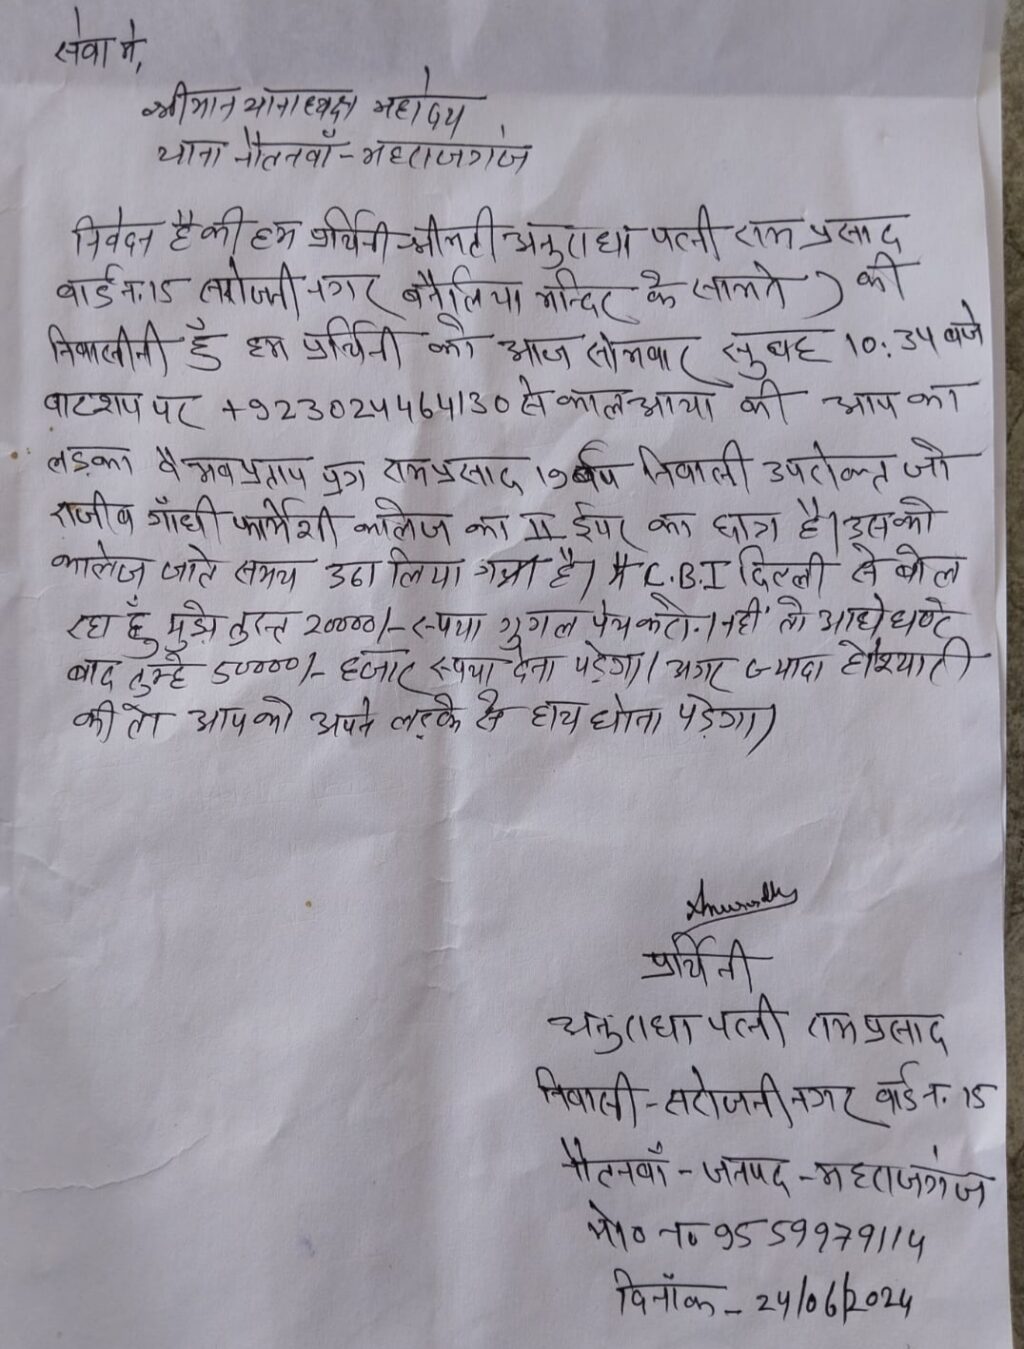 सेवा मे,
श्रीमान थानाध्यक्ष महोदय
थाना नौतनवाँ - महराजगंज
निवेदन है की हम प्रर्थिनी श्रीमती अनुराधा पत्नी राम प्रसाद
वार्ड न. 15 सरोजनी नगर बनैलिया मन्दिर के सामने) की
निवासीनी हूँ हम प्रर्थिनी को आज सोमवार सुबह 10:34 बजे
वाटशप पर +923024464130 से काल आया की आप का
लड़का वैभव प्रताप पुत्र राम प्रसाद 19 वर्ष निवासी उपरोक्त जो
राजीव गाँधी फार्मेशी कालेज का II ईयर का छात्र है। उसको
कालेज जाते समय उठा लिया गया है। मै C.B.I दिल्ली से बोल
रहा हूँ मुझे तुरन्त 20000/- रूपया गुगल पेय करो। नहीं तो आधे घण्टे
बाद तुम्हे 50000/- हजार रूपया देना पड़ेगा। अगर ज्यादा होशियारी
की तो आपको अपने लड़के से हाथ धोना पड़ेगा।
प्रर्थिनी
अनुराधा पत्नी राम प्रसाद
निवासी - सरोजनी नगर वार्ड न. 15
नौतनवाँ - जनपद - महराजगंज
मो० न० 9559979114
दिनाँक - 24/06/2024